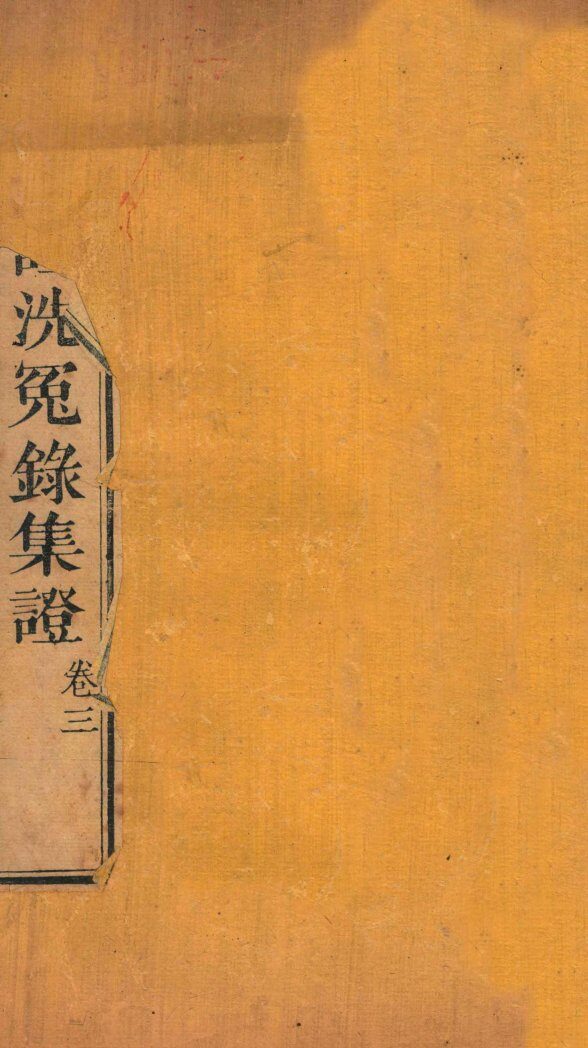 洗冤錄集證
卷三